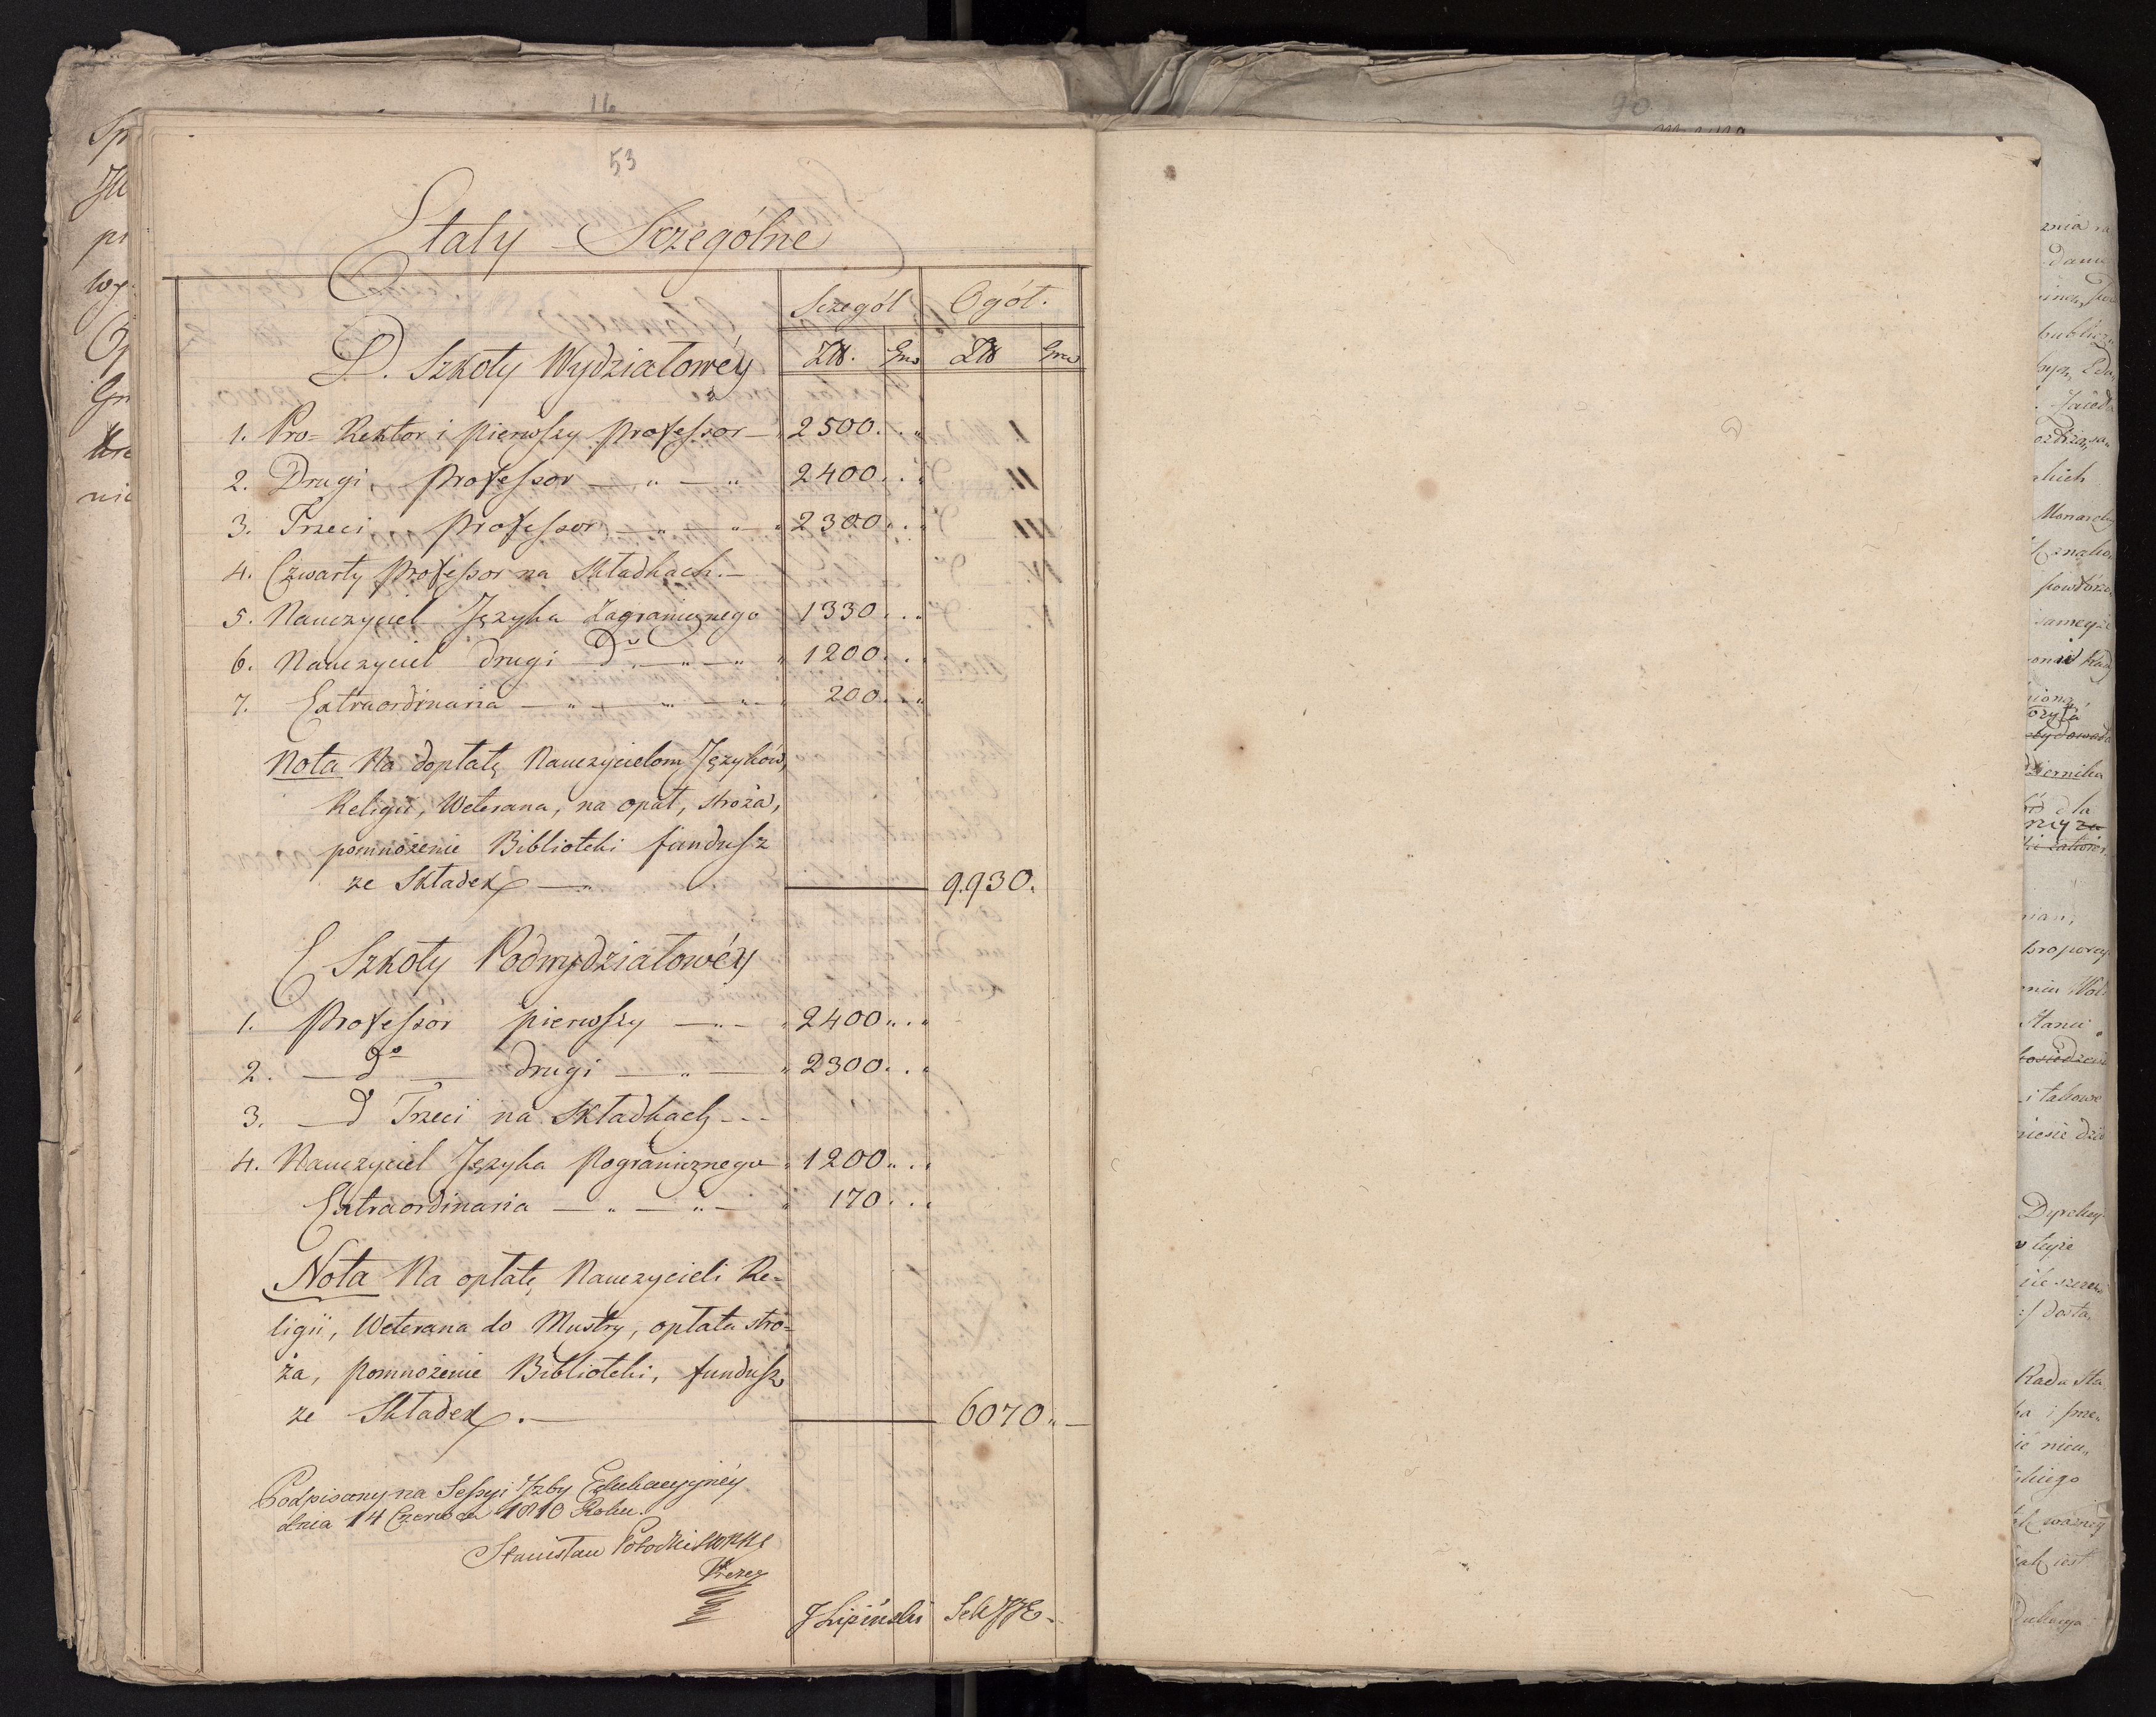 16
90
53
Etaty Sczególne
Sczegół Ogół.
Zł. Gro Zł Gro
D. Szkoły Wydziałowéy
1. Pro=Rektor i pierwszy Professor — 2500. . „
2. Drugi Professor — „ — „ 2400. . „
3. Trzeci Professor — „ — „ — „ 2300. . „
4. Czwarty Professor na Składkach. —
5. Nauczyciel Języka Zagranicznego 1330. . „
6. Nauczyciel drugi do — „ — „ 1200. . .
7. Extraordinaria — „ — „ — „ — 200. . „
Nota Na dopłatę Nauczycielom Języków,
Religii, Weterana, na opał, stróża,
pomnożenie Biblioteki fundusz
ze Składek — „ 9.930.
E Szkoły Podwydziałowéy
1. Professor pierwszy — „ — „ 2400 „ . „
2. — do — drugi — „ — „ 2300. . „
3. — d Trzeci na Składkach - - -
4. Nauczyciel Języka Pogranicznego „ 1200 „ . .
Extraordinaria — „ — „ — „ 170. . .
Nota Na opłatę Nauczycieli Re=
ligii, Weterana do Mustry, opłata stró=
ża, pomnożenie Biblioteki, fundusz
ze Składek. — 6070 „ —
Podpisany na Sessyi Izby Edukacyjnéy
dnia 14 Czerwca 1810 Roku.
Stanisław Potocki
Prezes
J Lipiński Sek